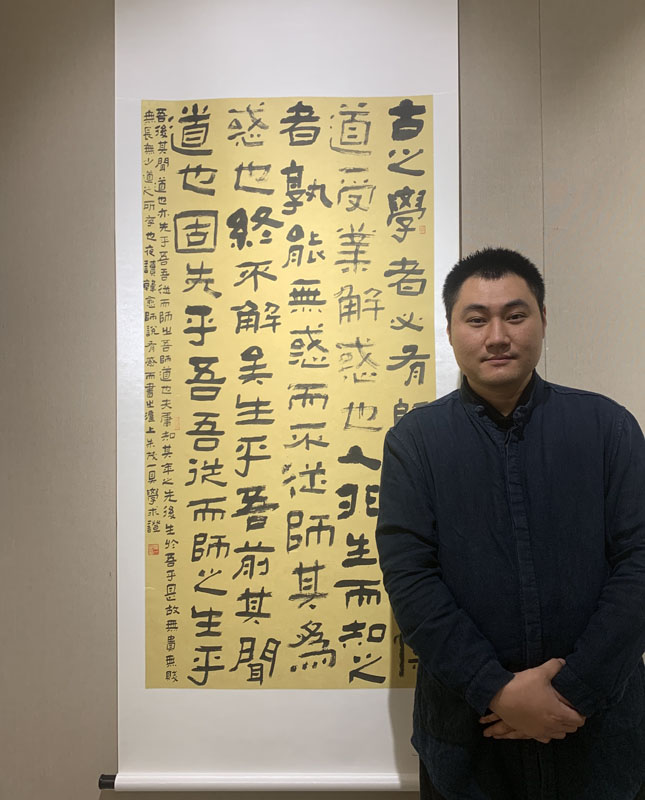 古之學者必有師
道受業解惑也人非生而知之
者孰能無惑而不從師其為
惑也終不解矣生乎吾前其聞
道也固先乎吾吾從而師之生乎
吾後其聞道也亦先乎吾吾從而師之吾師道也夫庸知其年之先後生於吾乎是故無貴無賤
無長無少道之所存也夜讀韓愈師說有感而書之 上 學求證